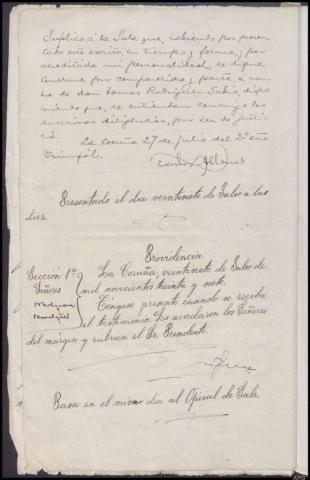 Suplico á la Sala que, habiendo por presen-
tado este escrito, en tiempo y forma, y por
acreditada mi personalidad, se digne
tenerme por comparecido y parte, a nom-
bre de don Tomas Rodriguez Sabio, dispo-
niendo que, se entiendan conmigo las
sucesivas diligencias, por ser de justi-
cia.
La Coruña 27 de julio del 2º año
Triunfal.
Presentado el dia veintisiete de Julio a las
diez.
Providencia
Sección 1ª La Coruña, veintisiete de Julio de
Señores mil novecientos treinta y siete.
Tengase presente cuando se reciba
el testimonio. Lo acordaron los Señores
del margen y rubrica el Sr. Presidente.
Pasa en el mismo dia al Oficial de Sala.